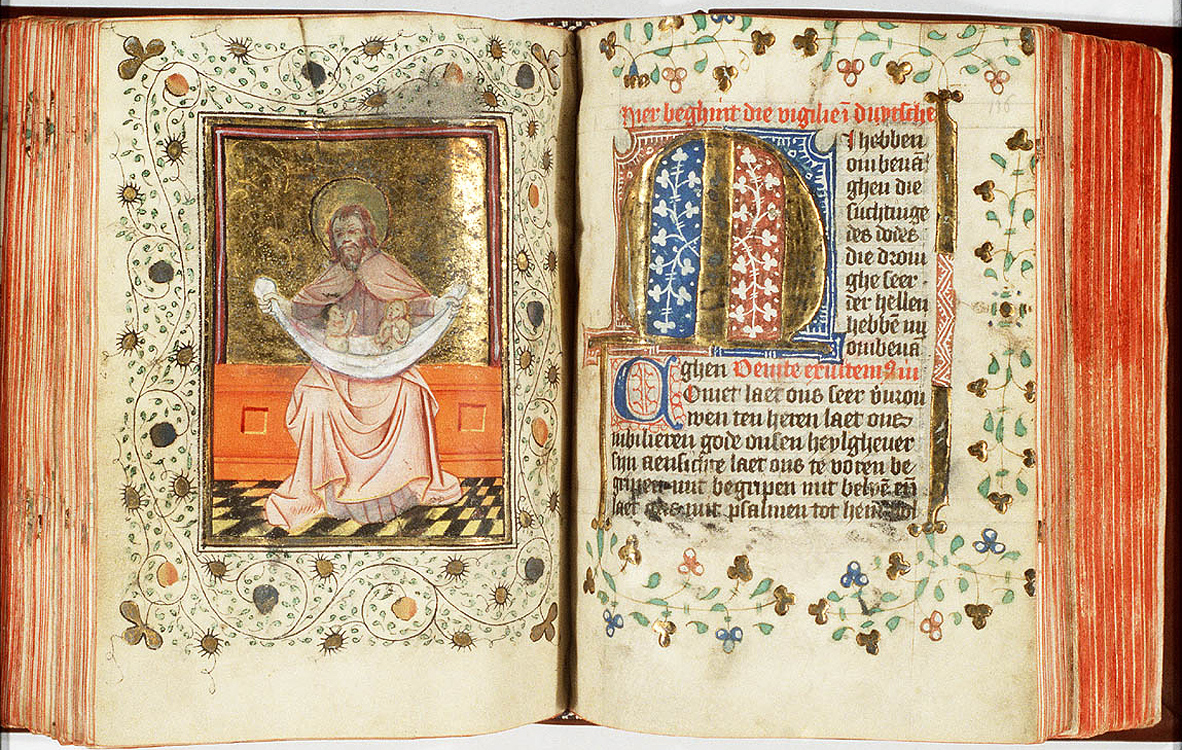 hier beghint die vigilien̄ duytsche
M I hebben
ombeuā
ghen die
suchtinge
des dodes
die drou
ghe seer
der hellen
hebbē mi
ombeuā
ghen Venite exultem9 in
Comet laet ons seer v̄urou
wen ten heren laet ons
iubilieren gode onsen heylgheuer
sijn aensichte laet ons te voren be
gripen mit begripen mit belyē en̄
laet ons mit psalmen tot hem